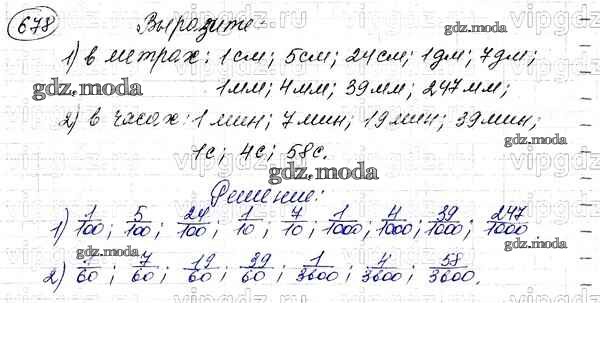 678 Выразите:
1) в метрах: 1см; 5см; 24см; 1дм; 7дм;
1мм; 4мм; 39мм; 247мм;
2) в часах: 1мин; 7мин; 19мин; 39мин;
1с; 4с; 58с.
Решение:
1) 1/100; 5/100; 24/100; 1/10; 7/10; 1/1000; 4/1000; 39/1000; 247/1000
2) 1/60; 7/60; 19/60; 39/60; 1/3600; 4/3600; 58/3600.
gdz.moda
gdz.moda
gdz.moda
gdz.moda
gdz.moda
gdz.moda
gdz.moda